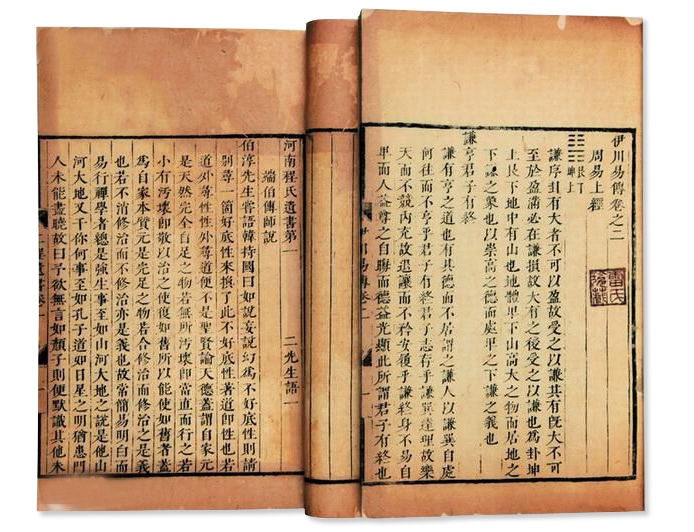 伊川易傳卷之二
周易上經
艮下
坤上
謙序卦有大者不可以盈故受之以謙其有旣大不可
至於盈滿必在謙損故大有之後受之以謙也爲卦坤
上艮下地中有山也地體卑下山高大之物而居地之
下謙之象也以崇高之德而處卑之下謙之義也
謙亨君子有終
謙有亨之道也有其德而不居謂之謙人以謙巽自處
何往而不亨乎君子有終君子志存乎謙巽達理故樂
天而不競內充故退讓而不矜安履乎謙終身不易自
卑而人益尊之自晦而德益光顯此所謂君子有終也
伊川易傳卷二
河南程氏遺書第一
二先生語一
端伯傳師說
伯淳先生嘗語韓持國曰如說妄說幻爲不好底性則請
別尋一箇好底性來換了此不好底性著道卽性也若
道外尋性性外尋道便不是聖賢論天德蓋謂自家元
是天然完全自足之物若無所汚壞卽當直而行之若
小有汚壞卽敬以治之使復如舊所以能使如舊者蓋
爲自家本質元是完足之物若合修治而修治之是義
也若不消修治而不修治亦是義也故常簡易明白而
易行禪學者總是強生事至如山河大地之說是他山
河大地又干你何事至如孔子道如日星之明猶患門
人未能盡曉故曰予欲無言如顏子則便默識其他未